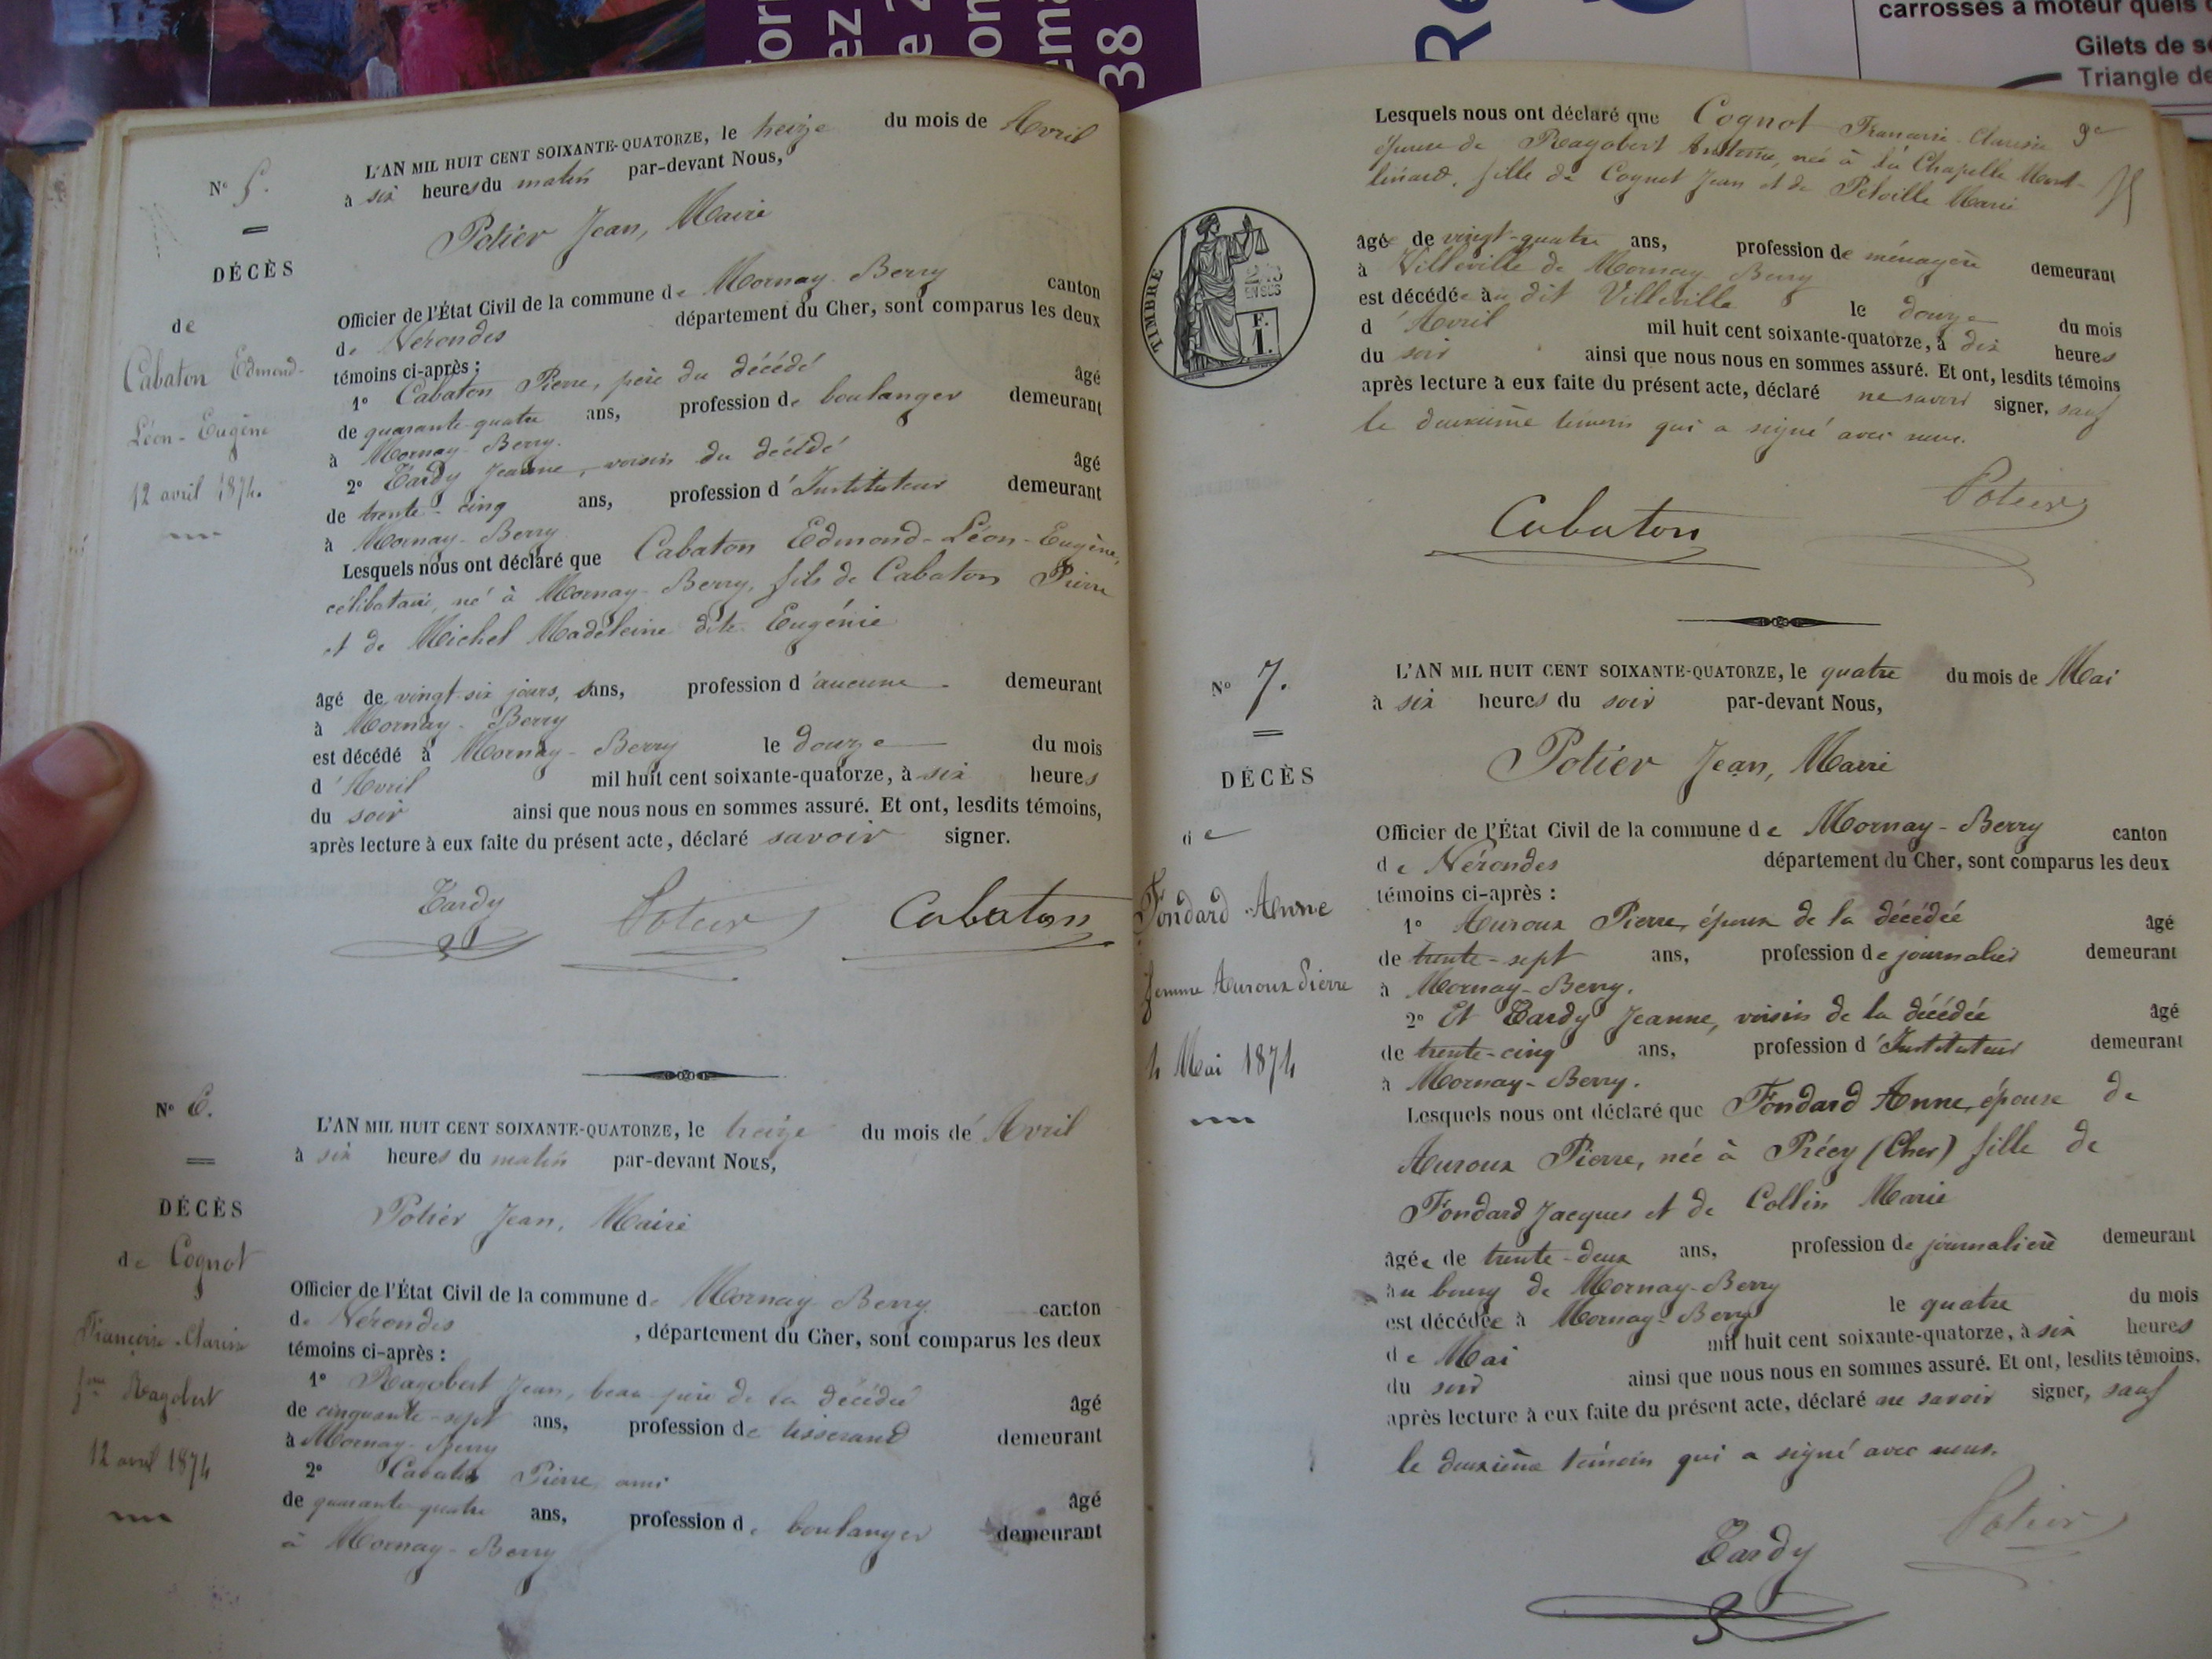 carrosses à moteur quels
Gilets de
Triangle de
38
N° 5.
DÉCÈS
de
Cabaton Edmond-
Léon-Eugène
12 avril 1874.
L'AN MIL HUIT CENT SOIXANTE-QUATORZE, le treize du mois de Avril
à six heures du matin par-devant Nous,
Potier Jean, Maire
Officier de l'État Civil de la commune de Mornay-Berry canton
de Nérondes département du Cher, sont comparus les deux
témoins ci-après :
1° Cabaton Pierre, père du décédé âgé
de quarante-quatre ans, profession de boulanger demeurant
à Mornay-Berry.
2° Tardy Jeanne, voisin du décédé âgé
de trente-cinq ans, profession d'Instituteur demeurant
à Mornay-Berry
Lesquels nous ont déclaré que Cabaton Edmond-Léon-Eugène,
célibataire, né à Mornay-Berry, fils de Cabaton Pierre
et de Michel Madeleine dite Eugénie
âgé de vingt-six jours, ans, profession d'aucune demeurant
à Mornay-Berry
est décédé à Mornay-Berry le douze du mois
d'Avril mil huit cent soixante-quatorze, à six heures
du soir ainsi que nous nous en sommes assuré. Et ont, lesdits témoins,
après lecture à eux faite du présent acte, déclaré savoir signer.
Tardy Potier Cabaton
N° 6.
DÉCÈS
de Cognot
Françoise-Clarisse
fme Ragobert
12 avril 1874
L'AN MIL HUIT CENT SOIXANTE-QUATORZE, le treize du mois de Avril
à six heures du matin par-devant Nous,
Potier Jean, Maire
Officier de l'État Civil de la commune de Mornay-Berry canton
de Nérondes, département du Cher, sont comparus les deux
témoins ci-après :
1° Ragobert Jean, beau-père de la décédée âgé
de cinquante-sept ans, profession de tisserand demeurant
à Mornay-Berry
2° Cabaton Pierre ami âgé
de quarante-quatre ans, profession de boulanger demeurant
à Mornay-Berry
Lesquels nous ont déclaré que Cognot Françoise-Clarisse
épouse de Ragobert Antoine, née à la Chapelle Mont-
linard, fille de Cognot Jean et de Marie
TIMBRE
2/10
EN SUS
F.
1.
âgée de vingt-quatre ans, profession de ménagère demeurant
à Villeville de Mornay-Berry
est décédée au dit Villeville le douze du mois
d'Avril mil huit cent soixante-quatorze, à dix heures
du soir ainsi que nous nous en sommes assuré. Et ont, lesdits témoins
après lecture à eux faite du présent acte, déclaré ne savoir signer, sauf
le deuxième témoin qui a signé avec nous.
Cabaton Potier
N° 7.
DÉCÈS
de
Fondard Anne
femme Auroux Pierre
4 Mai 1874
L'AN MIL HUIT CENT SOIXANTE-QUATORZE, le quatre du mois de Mai
à six heures du soir par-devant Nous,
Potier Jean, Maire
Officier de l'État Civil de la commune de Mornay-Berry canton
de Nérondes département du Cher, sont comparus les deux
témoins ci-après :
1° Auroux Pierre, époux de la décédée âgé
de trente-sept ans, profession de journalier demeurant
à Mornay-Berry.
2° Et Tardy Jeanne, voisin de la décédée âgé
de trente-cinq ans, profession d'Instituteur demeurant
à Mornay-Berry.
Lesquels nous ont déclaré que Fondard Anne, épouse de
Auroux Pierre, née à Précy (Cher) fille de
Fondard Jacques et de Collin Marie
âgée de trente-deux ans, profession de journalière demeurant
au bourg de Mornay-Berry
est décédée à Mornay-Berry le quatre du mois
de Mai mil huit cent soixante-quatorze, à six heures
du soir ainsi que nous nous en sommes assuré. Et ont, lesdits témoins,
après lecture à eux faite du présent acte, déclaré ne savoir signer, sauf
le deuxième témoin qui a signé avec nous.
Tardy Potier